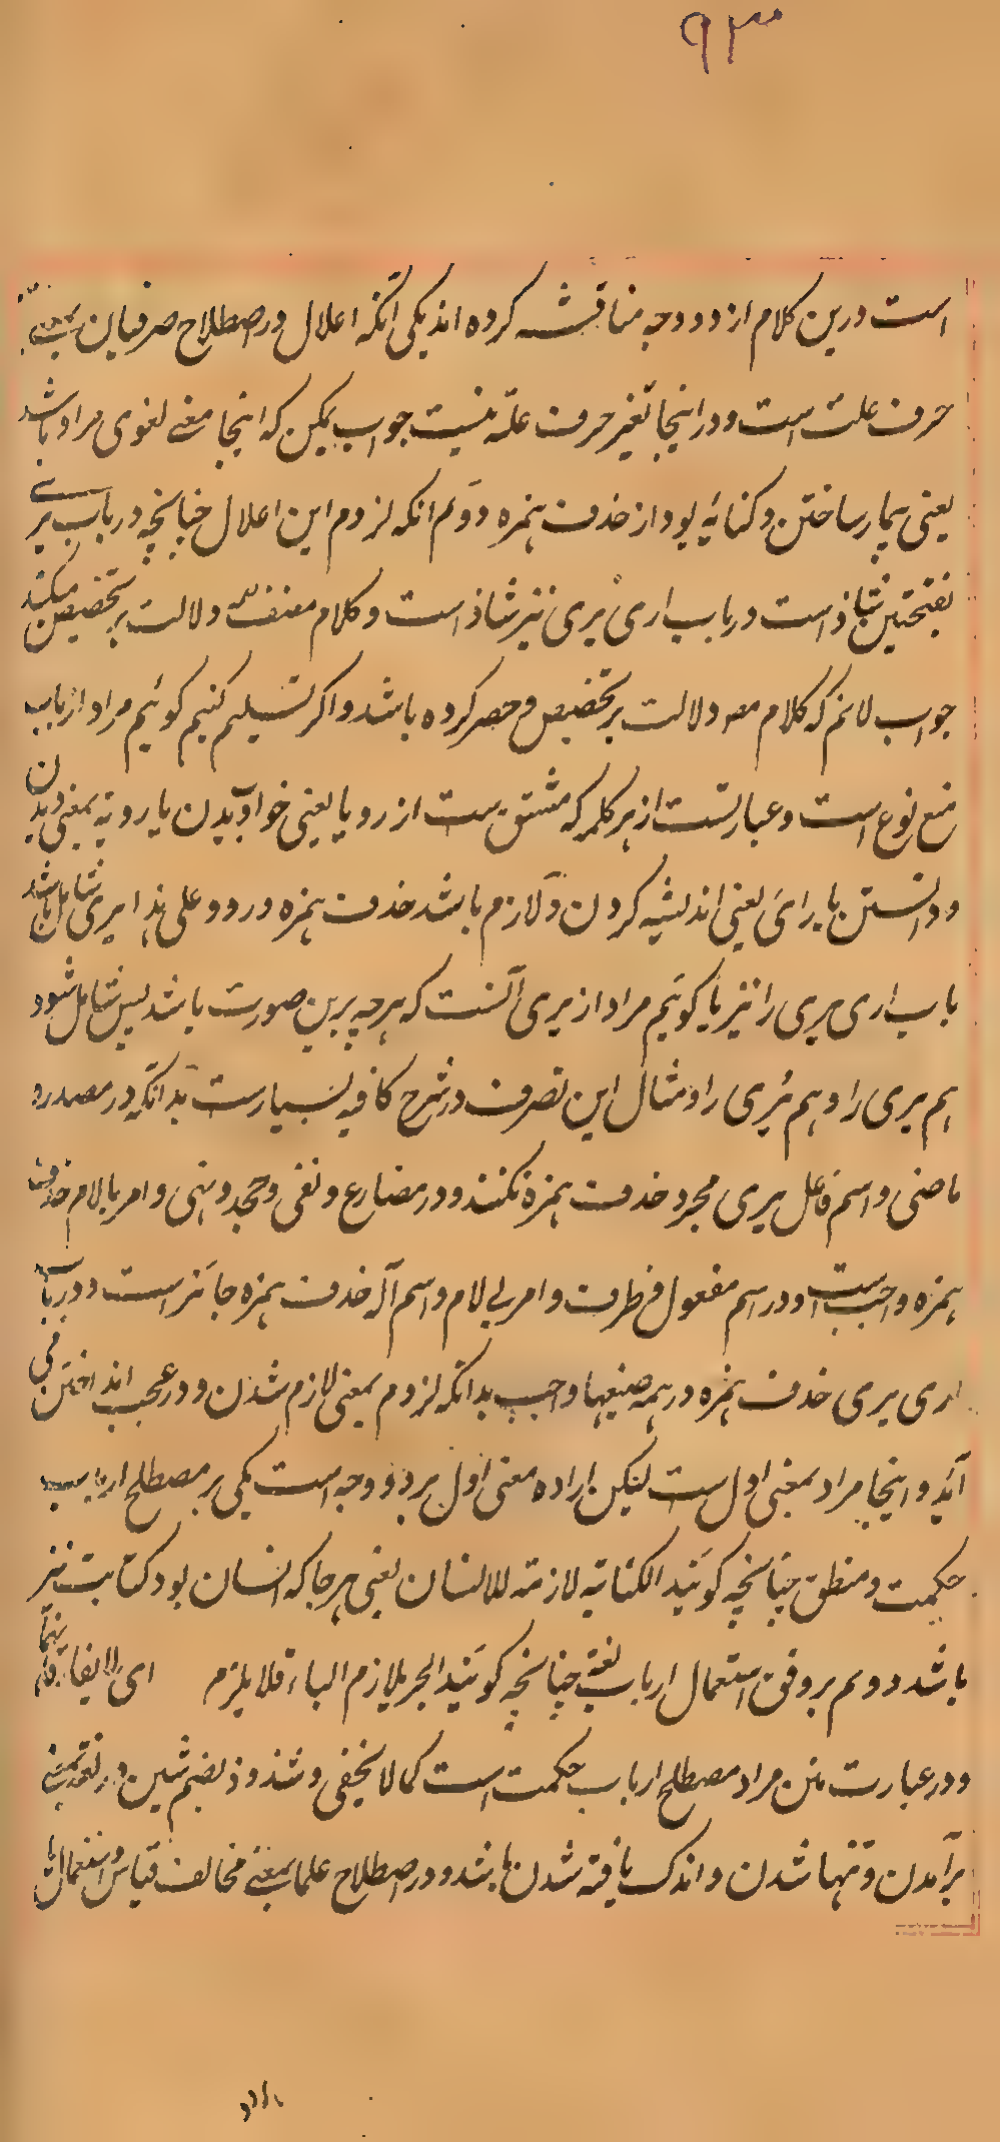 ۹۳
است درین کلام از دو وجه مناقشه کرده اند یکی آنکه اعلال در اصطلاح صرفیان
حرف علت است و در اینجا تغیر حرف علة نیست جواب یمکن که اینجا معنے لغوی مراد باشد
یعنی بیمار ساختن و کنایه بود از حذف همزه دوم انکه لزوم این اعلال چنانچه در باب یرے
بفتحتین شاذ است در باب اری یری نیز شاذ است و کلام مصنف دلالت بر تخصیص میکند
جواب لانم که کلام مصه دلالت بر تخصیص و حصر کرده باشد و اکر تسلیم کنیم کوئیم مراد از باب
نوع است و عبارتست از هر کلمه که مشتق ست از رویا یعنی خواب دیدن یا رویة بمعنی دیدن
و دانستن یا رای یعنی اندیشه کردن و لازم باشد حذف همزه در و و علی هذا یری شامل باشد
باب اری یری را نیز یا کوئیم مراد از یری آنست که هرچه برین صورت باشد پس شامل شود
هم یری را و هم یُری را و مثال این تصرف در شرح کافیه بسیارست بدانکه در مصدر و
ماضی و اسم فاعل یری مجرد حذف همزه نکنند و در مضارع و نفی و جحد و نهی و امر بالام حذف
همزه واجب است و در اسم مفعول و ظرف و امر بی لام و اسم آله حذف همزه جائز است و در باب
اری یری حذف همزه در همه صیغها واجب بدانکه لزوم بمعنی لازم شدن و در عجب انداختن می
آید و اینجا مراد بمعنی اول ست لیکن اراده معنی اول بر دو وجه است یکی بر مصطلح ارباب
حکمت و منطق چنانچه کویند الکتابة لازمة للانسان یعنی هرجا که انسان بود کتابت نیز
باشد دوم بر وفق استعمال ارباب لغة چنانچه کویند الجر یلازم الباء فلا یلزم ای لا یفارقه
و در عبارت متن مراد مصطلح ارباب حکمت است کما لا یخفی و شذوذ بضم شین در لغة بمعنے
برآمدن و تنها شدن و اندک یافته شدن باشد و در اصطلاح علما بمعنے مخالف قیاس و استعمال یا